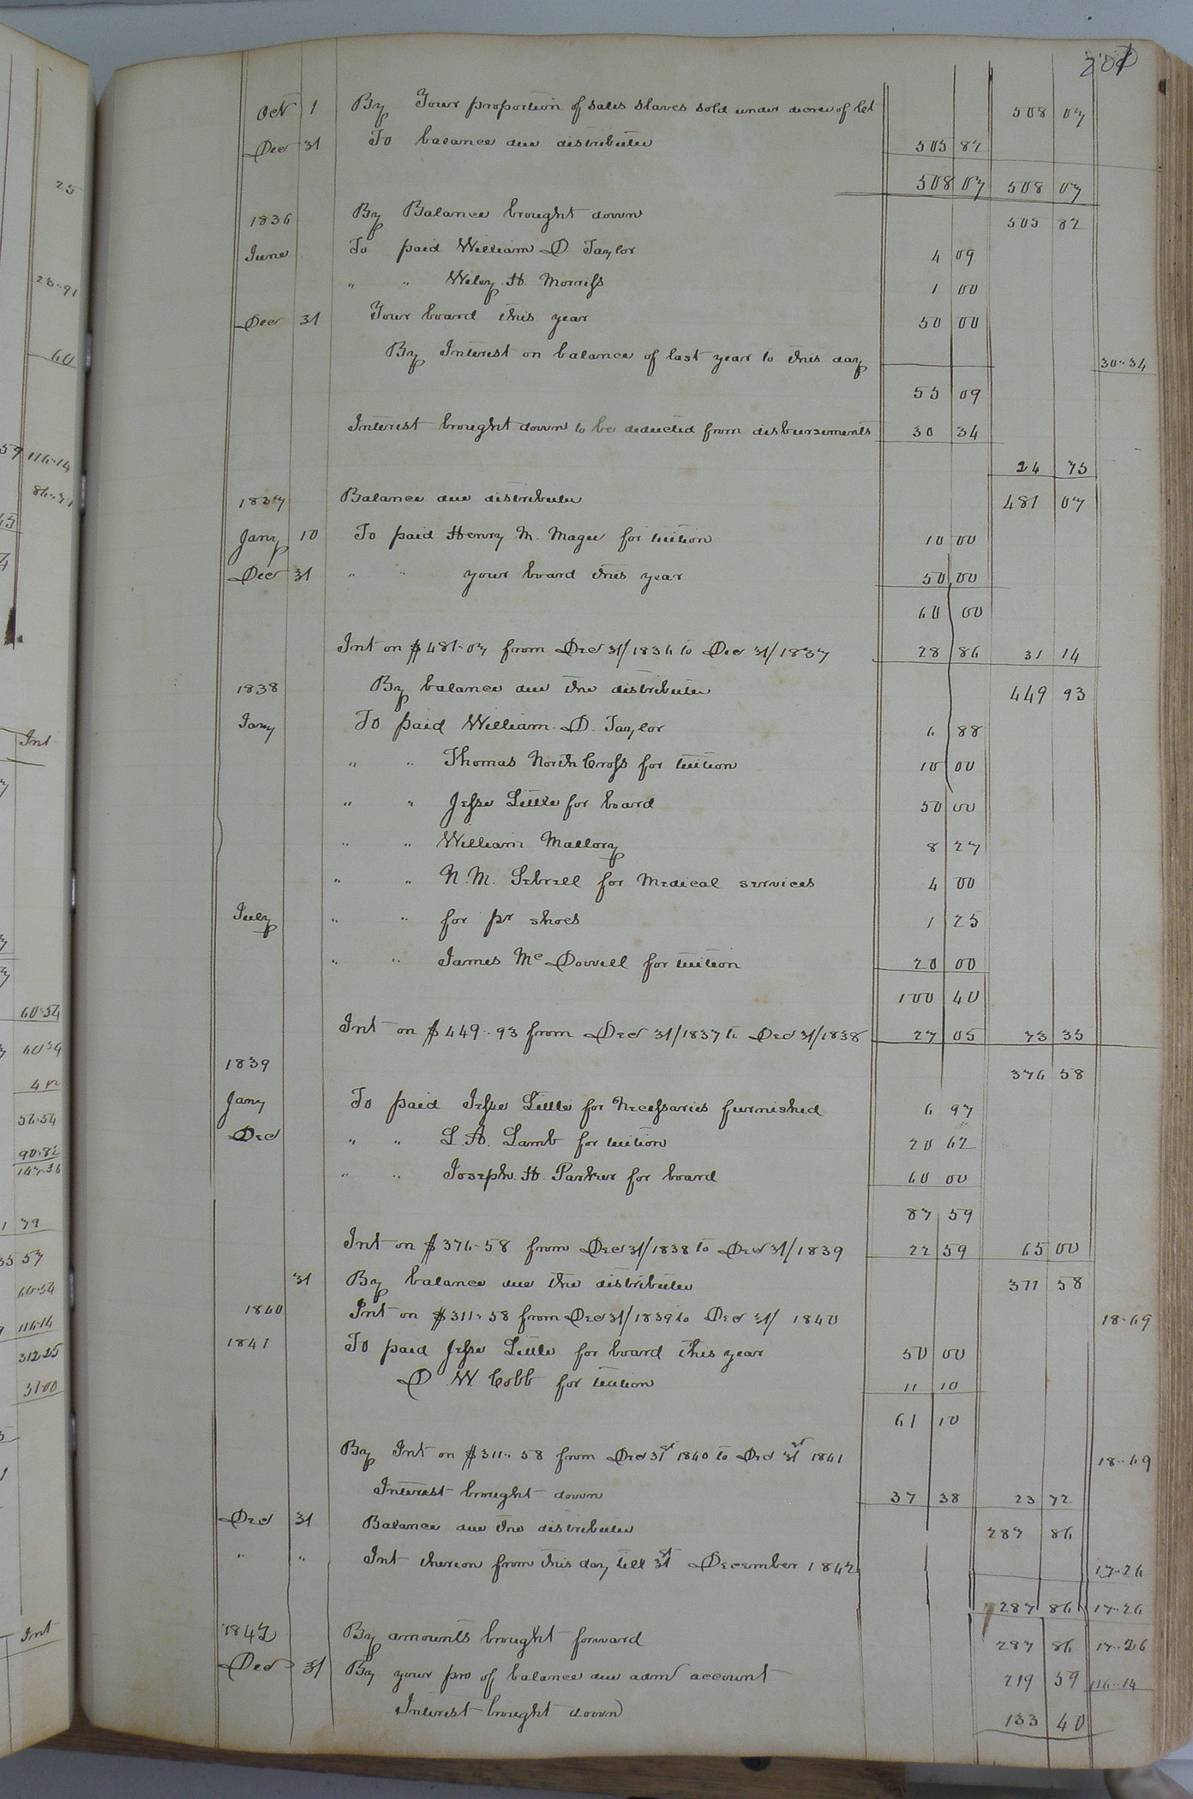 201
Oct 1 By Your proportion of sales slaves sold under decree of 508 07
Dec 31 To balance due distributee 505 82
508 07 508 07
1836 By Balance brought down 505 82
June To paid William D Taylor 4 09
" " Wiley H. Morriss 1 00
Dec 31 Your board this year 50 00
By Interest on balance of last year to this day 30-34
55 09
Interest brought down to be deducted from disbursements 30 34
24 75
1837 Balance due distributee 481 07
Jany 10 To paid Henry M. Magee for tuition 10 00
Dec 31 " " your board this year 50 00
60 00
Int on $481-07 from Dec 31/1836 to Dec 31/1837 28 86 31 14
1838 By balance due the distributee 449 93
Jany To paid William D. Taylor 6 88
" " Thomas North Cross for tuition 10 00
" " Jesse Little for board 50 00
" " William Mallory 8 27
" " N. M. Sebrell for Medical services 4 00
July " " for pr shoes 1 25
" " James McDowell for tuition 20 00
100 40
Int on $449-93 from Dec 31/1837 to Dec 31/1838 27 05 73 35
1839 376 58
Jany To paid Jesse Little for Necessaries furnished 6 97
Dec " " L. A. Lamb for tuition 20 62
" " Joseph. H. Parker for board 60 00
87 59
Int on $376-58 from Dec 31/1838 to Dec 31/1839 22 59 65 00
31 By balance due the distributee 311 58
1840 Int on $311-58 from Dec 31/1839 to Dec 31/ 1840 18-69
1841 To paid Jesse Little for board this year 50 00
D W Cobb for tuition 11 10
61 10
By Int on $311-58 from Dec 31st 1840 to Dec 31st 1841 18-69
Interest brought down 37 38 23 72
Dec 31 Balance due the distributee 287 86
" " Int thereon from this day till 31st December 1842 17-26
287 86 17-26
1842 By amounts brought forward 287 86 17-26
Dec 31 By your pro of balance due adm account 219 59 116-14
Interest brought down 133 40
25
28-91
60
59 116-14
86-71
Int
60-54
4 12
56-54
90-82
147-36
79
35 57
60-54
116-14
312 25
31 00
Int